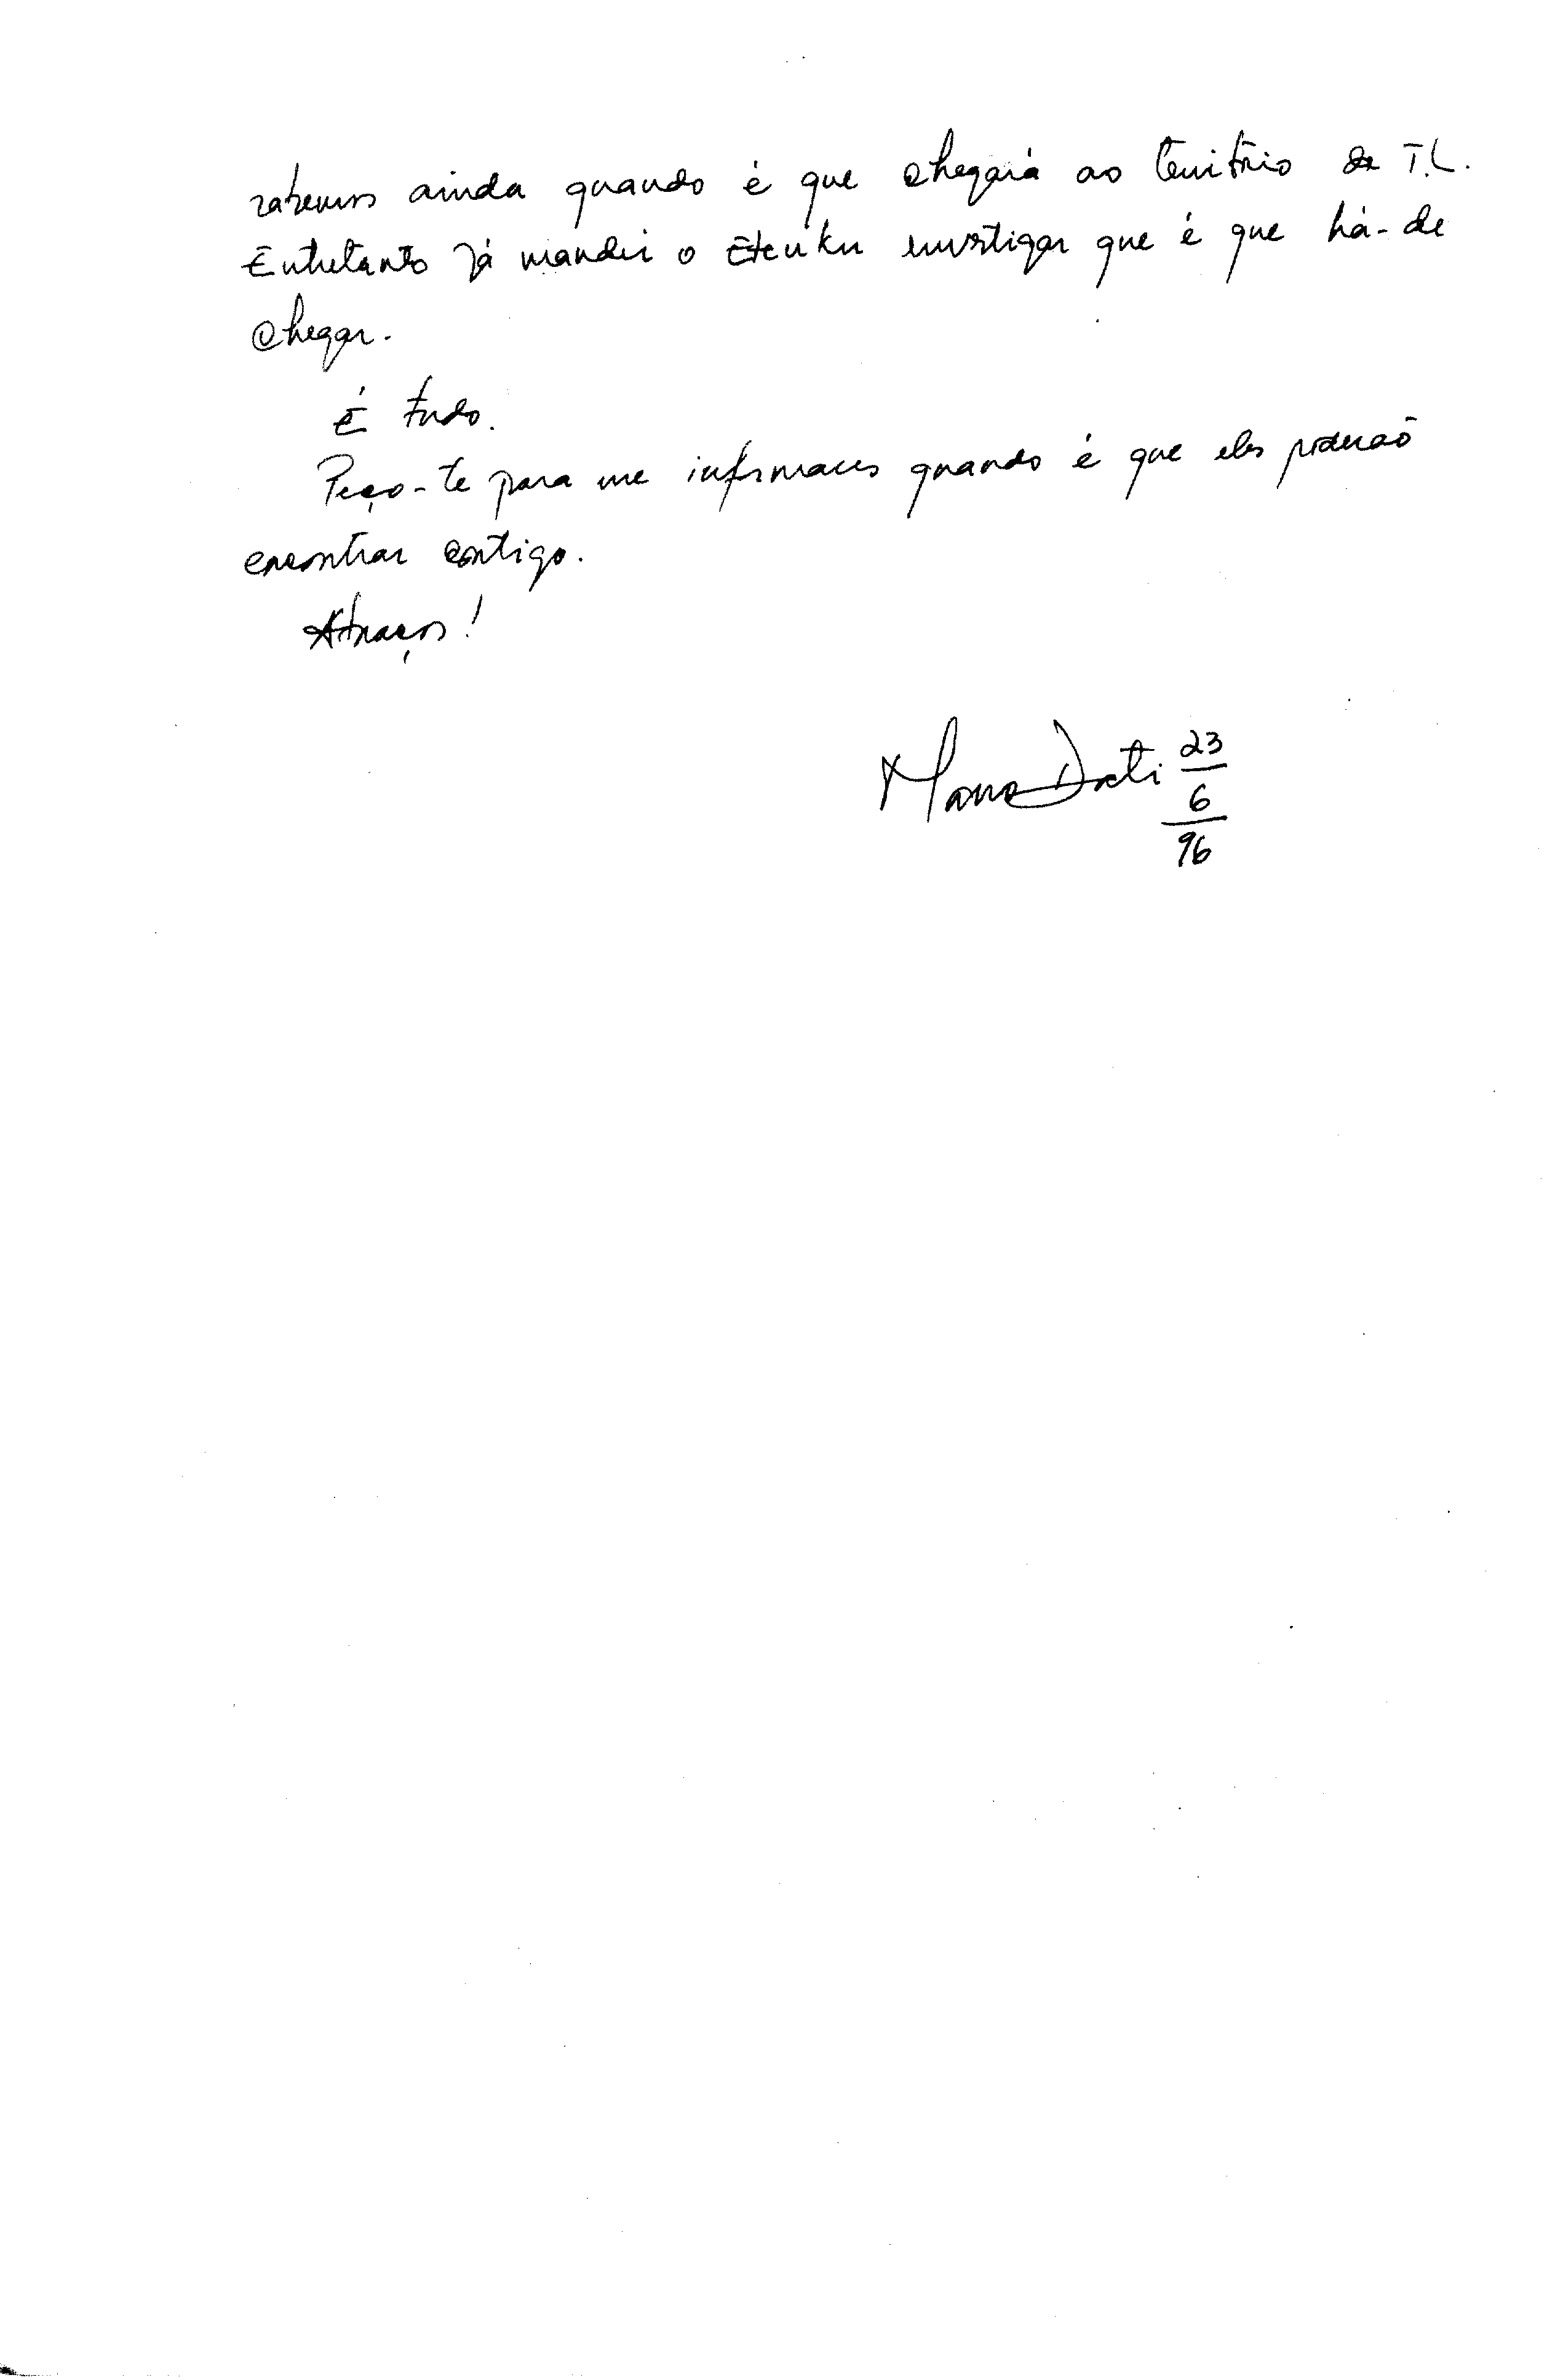 sabemos ainda quando é que chegará ao território de T.L.
Entretanto já mandei o Eteuku investigar que é que há-de
chegar.
É tudo.
Peço-te para me informares quando é que eles poderão
encontrar contigo.
Abraços!
Mauno Dati 23/6/96